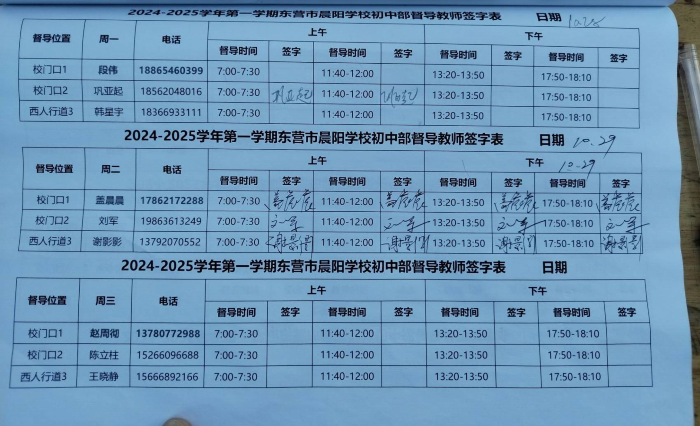 2024-2025学年第一学期东营市晨阳学校初中部督导教师签字表 日期 10.28
督导位置 周一 电话 上午 下午
督导时间 签字 督导时间 签字 督导时间 签字 督导时间 签字
校门口1 段伟 18865460399 7:00-7:30 11:40-12:00 13:20-13:50 17:50-18:10
校门口2 巩亚起 18562048016 7:00-7:30 巩亚起 11:40-12:00 巩亚起 13:20-13:50 17:50-18:10
西人行道3 韩星宇 18366933111 7:00-7:30 11:40-12:00 13:20-13:50 17:50-18:10
2024-2025学年第一学期东营市晨阳学校初中部督导教师签字表 日期 10.29
督导位置 周二 电话 上午 下午 10.29
督导时间 签字 督导时间 签字 督导时间 签字 督导时间 签字
校门口1 盖晨晨 17862172288 7:00-7:30 盖晨晨 11:40-12:00 盖晨晨 13:20-13:50 盖晨晨 17:50-18:10 盖晨晨
校门口2 刘军 19863613249 7:00-7:30 刘军 11:40-12:00 刘军 13:20-13:50 刘军 17:50-18:10 刘军
西人行道3 谢影影 13792070552 7:00-7:30 谢影影 11:40-12:00 谢影影 13:20-13:50 谢影影 17:50-18:10 谢影影
2024-2025学年第一学期东营市晨阳学校初中部督导教师签字表 日期
督导位置 周三 电话 上午 下午
督导时间 签字 督导时间 签字 督导时间 签字 督导时间 签字
校门口1 赵周彻 13780772988 7:00-7:30 11:40-12:00 13:20-13:50 17:50-18:10
校门口2 陈立柱 15266096688 7:00-7:30 11:40-12:00 13:20-13:50 17:50-18:10
西人行道3 王晓静 15666892166 7:00-7:30 11:40-12:00 13:20-13:50 17:50-18:10